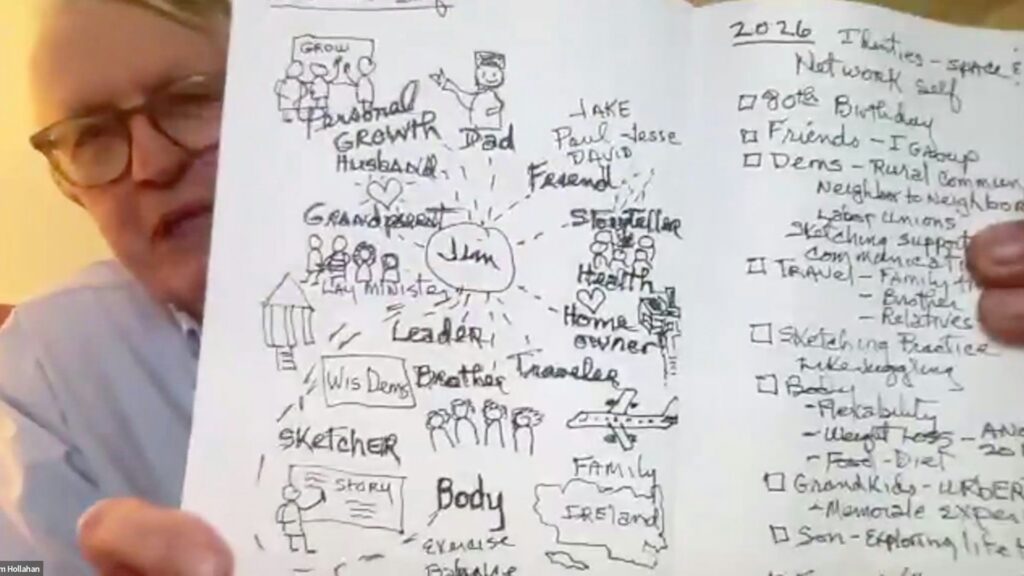 GROW
Personal
GROWTH
Dad
JAKE
Paul - Jesse
DAVID
Husband
Friend
Grandparent
Storyteller
Jim
Health
LAY MINISTER
Leader
Home
owner
Wis Dems
Brother
Traveler
SKETCHER
STORY
Body
Exercise
FAMILY
IRELAND
2026 Identies - SPACE &
Network self
80th Birthday
Friends - I Group
Dems - Rural Commun
Neighbor to Neighbor
Labor Unions
Sketching support
Communicati
TRAVEL - Family
- Brother
- Relatives
Sketching Practice
Like Juggling
Body
- Flexability
- Weight Loss -
- Food - Diet
GrandKids -
- Memorable Exper
Son - Exploring life
m Hollahan